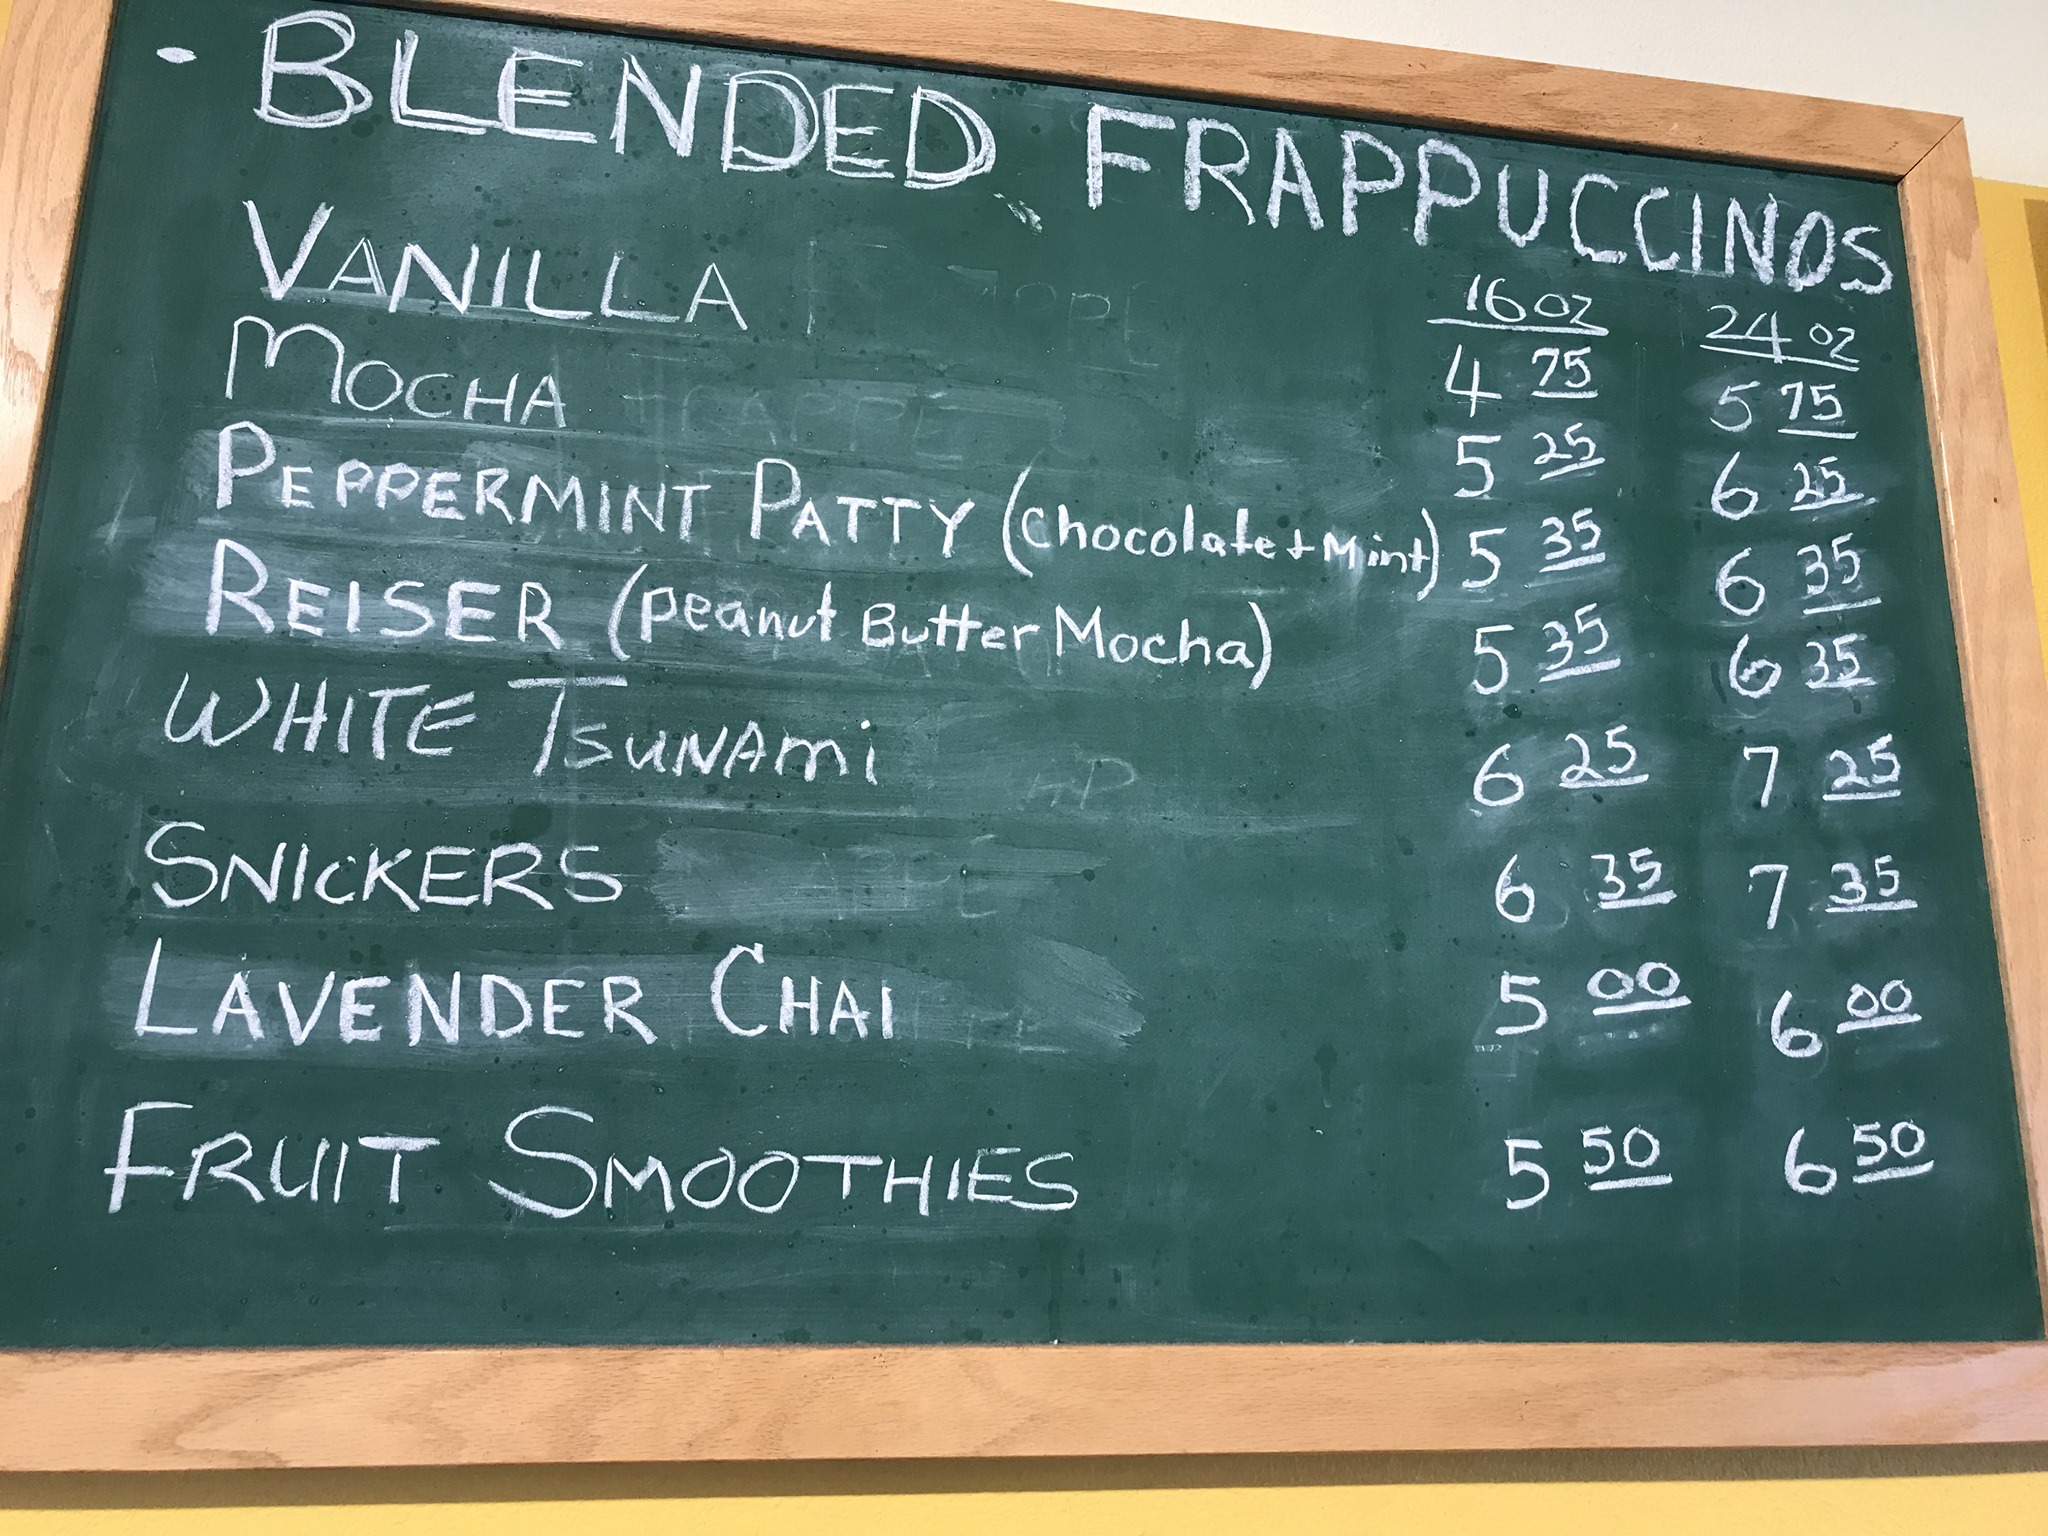 · BLENDED FRAPPUCCINOS
16 oz 24 oz
VANILLA 4 75 5 75
MOCHA 5 25 6 25
PEPPERMINT PATTY (Chocolate + Mint) 5 35 6 35
REISER (Peanut Butter Mocha) 5 35 6 35
WHITE TSUNAMi 6 25 7 25
SNICKERS 6 35 7 35
LAVENDER CHAI 5 00 6 00
FRUIT SMOOTHIES 5 50 6 50